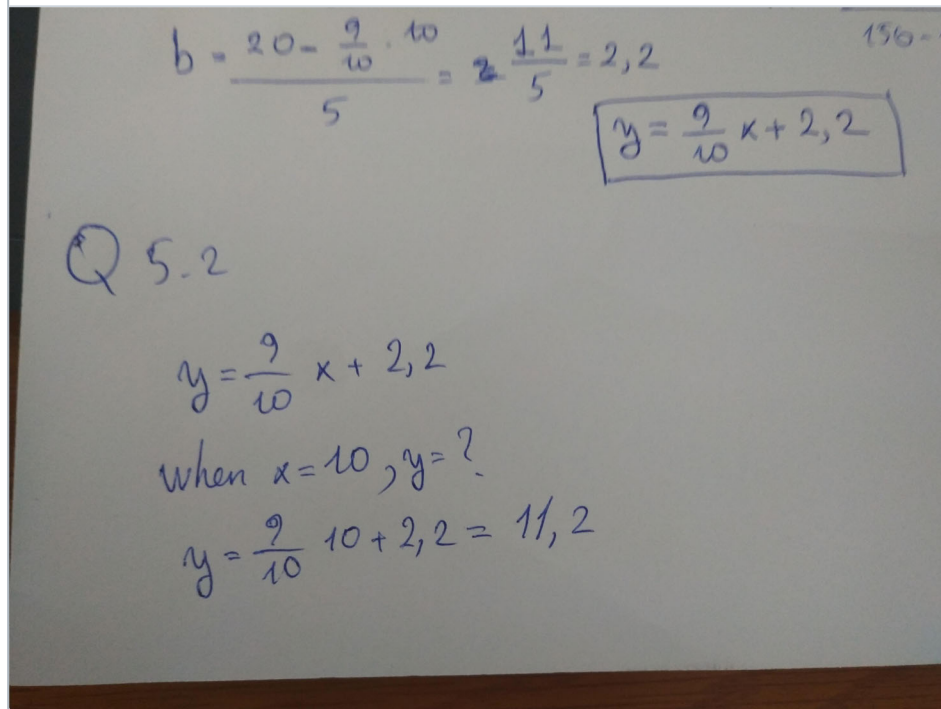 b = (20 - 9/10 . 10)/5 = 11/5 = 2,2
150-
y = 9/10 x + 2,2
Q 5.2
y = 9/10 x + 2,2
When x = 10, y = ?
y = 9/10 10 + 2,2 = 11,2